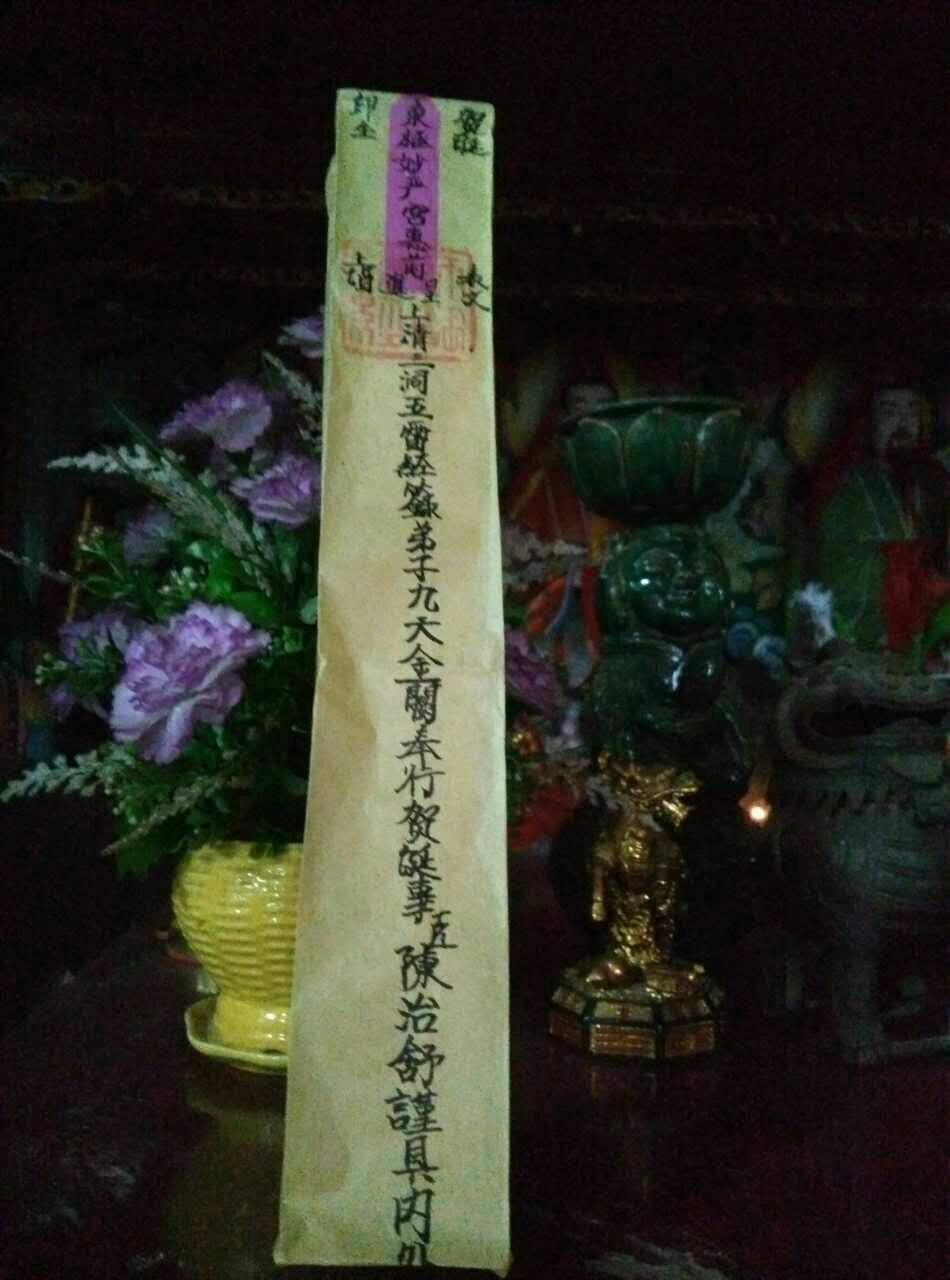 賀誕
表文
東極妙严宮惠前
呈進
上清三洞五雷經籙弟子九天金闕奉行賀誕事臣陳治舒謹具內外
印全
上詣